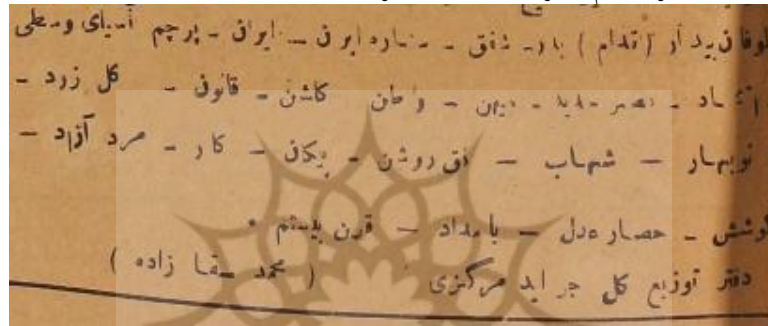 طوفان بیدار (اقدام) بهار - شفق - ستاره ایران - ایران - پرچم آسیای وسطی
اتحاد - عصر جدید - میهن - وطن گلشن - قانون - گل زرد -
نوبهار - شهاب - افق روشن - پیکان - کار - مرد آزاد -
کوشش - حصار عدل - بامداد - قرن بیستم •
دفتر توزیع کل جراید مرکزی (محمد سقا زاده)